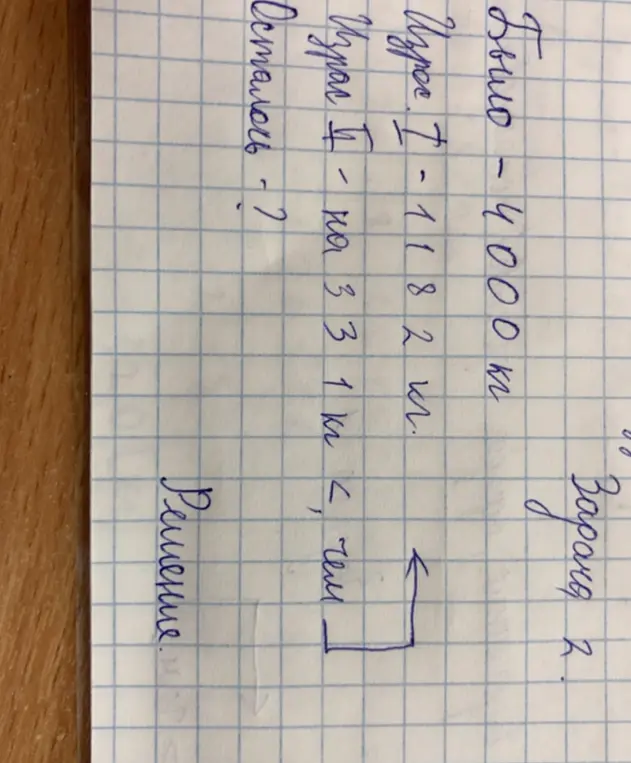 Задача 2.
Было - 4000 кг
Израс. I - 1182 кг.
Израс II - на 331 кг <, чем
Осталось - ?
Решение.